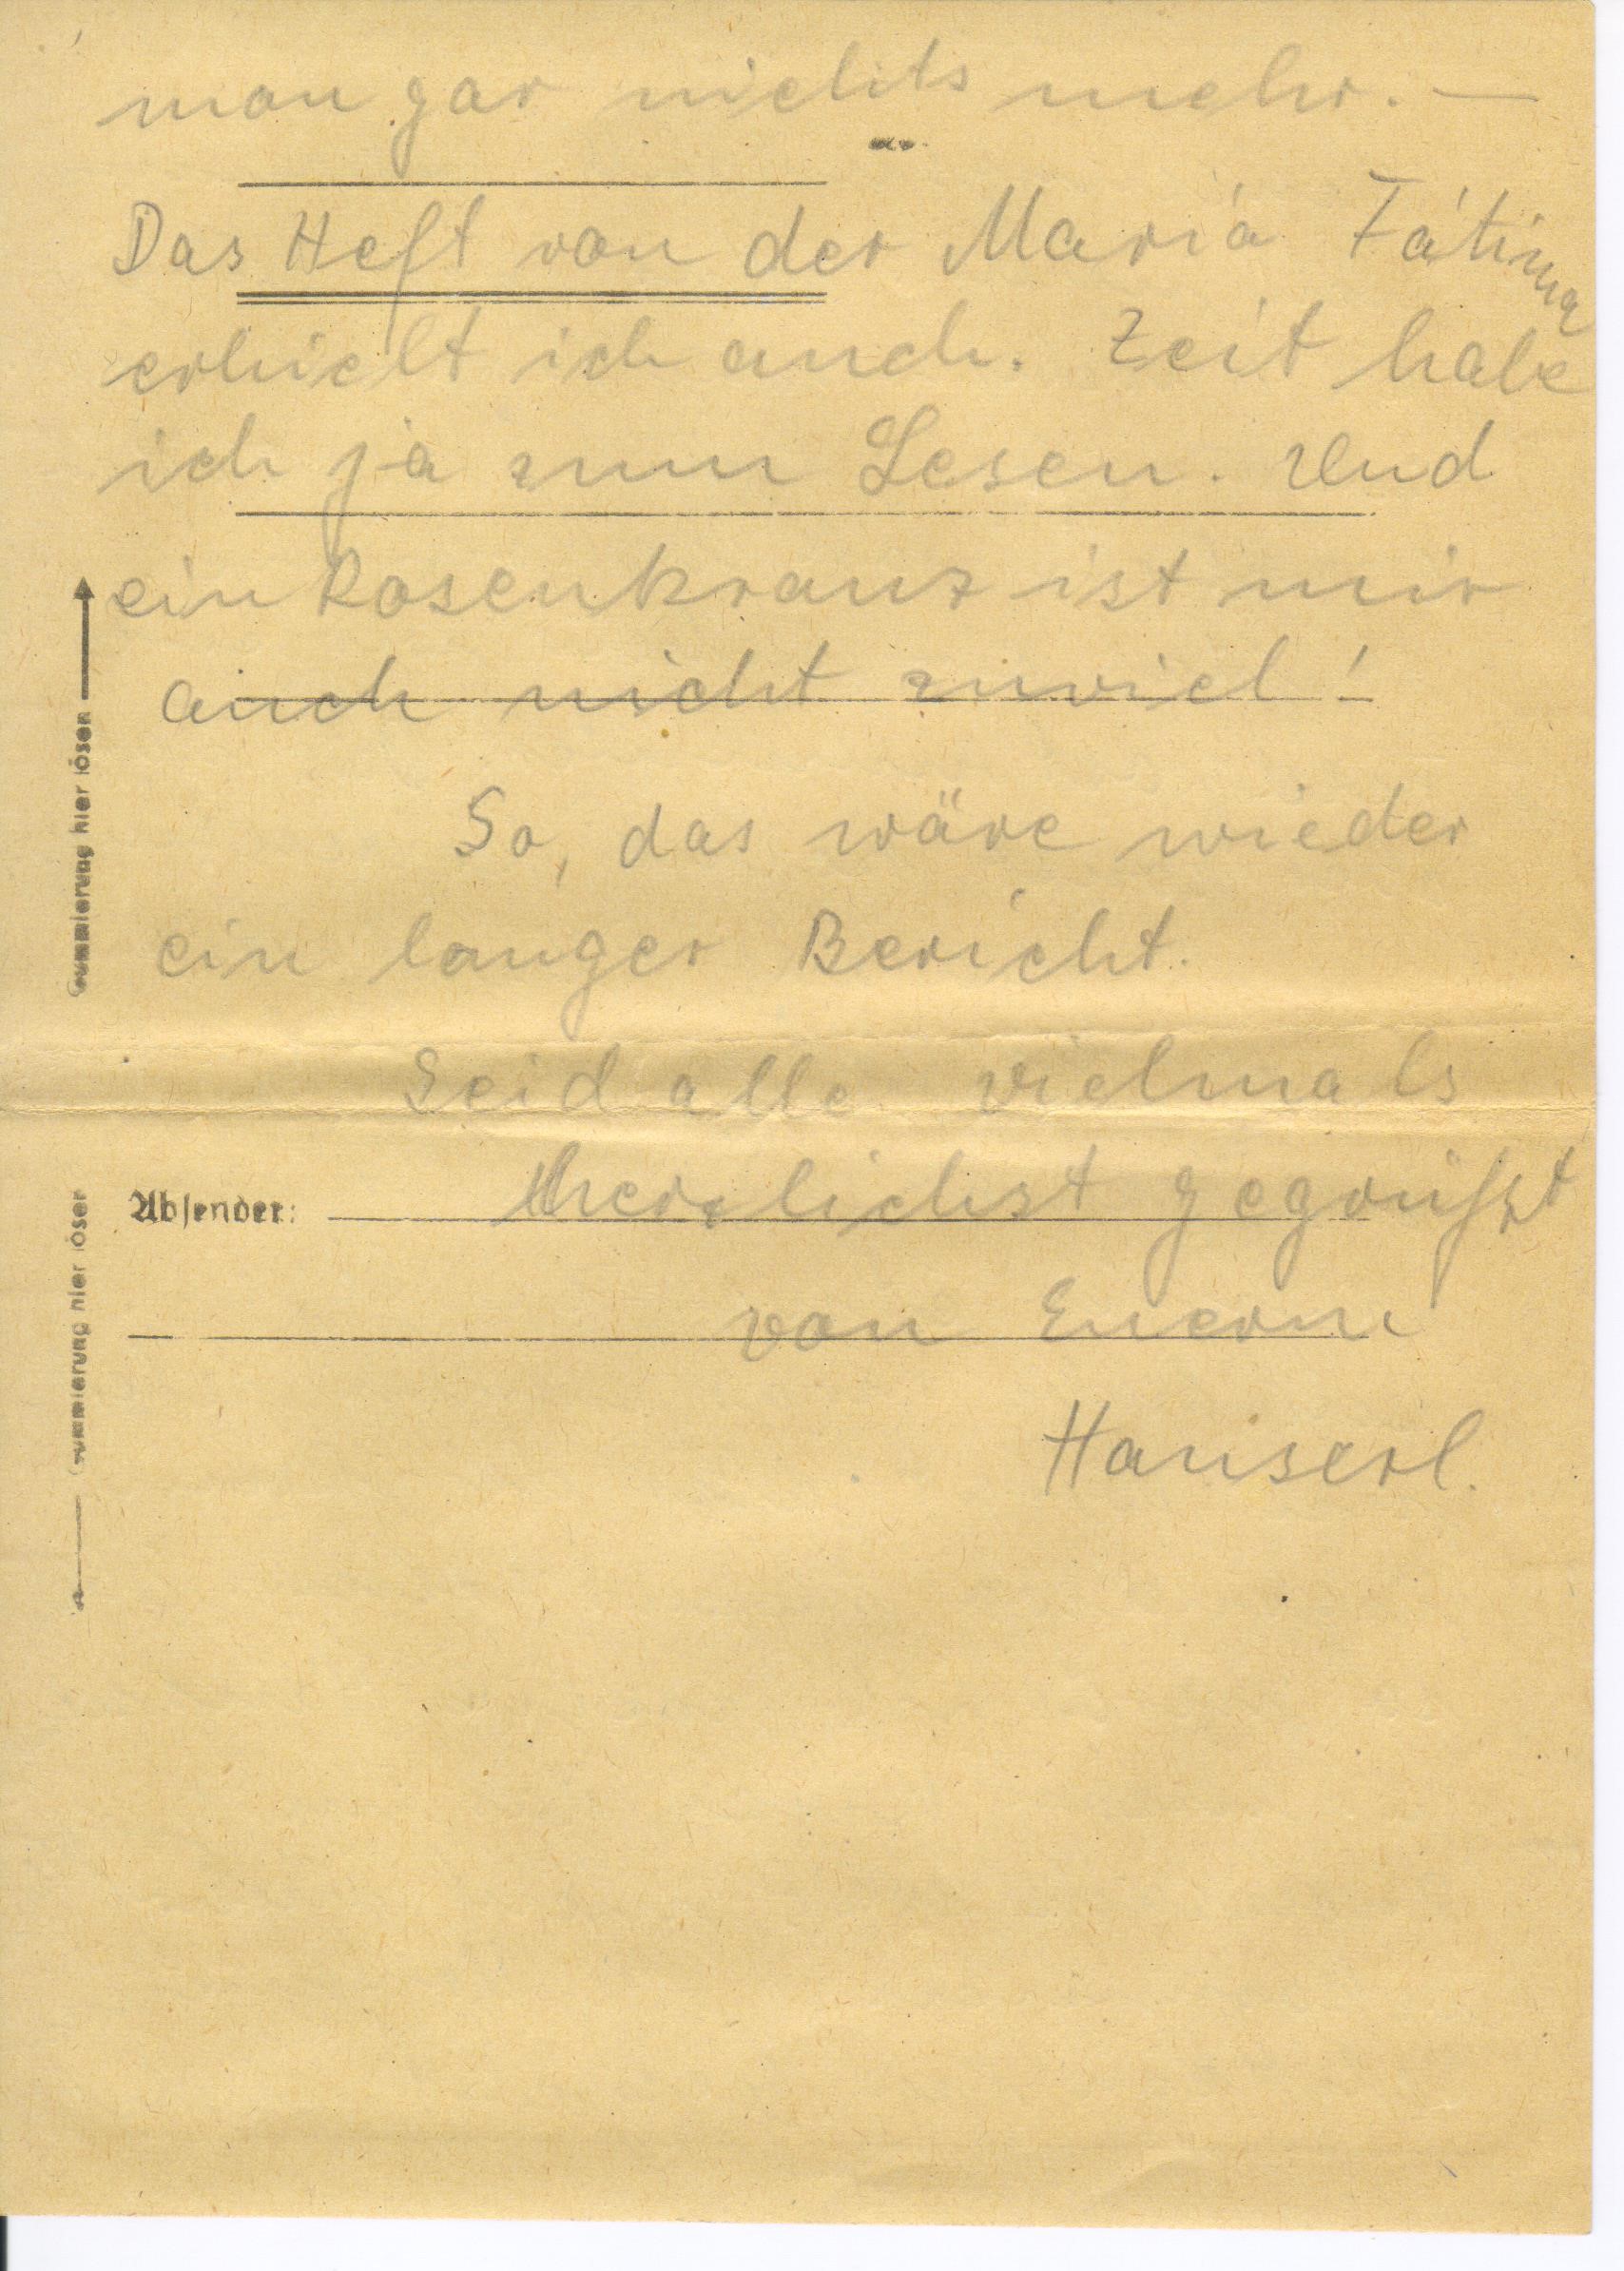 man gar nichts mehr. —
Das Heft von der Maria Fátima
erhielt ich auch. Zeit habe
ich ja zum Lesen. Und
ein Rosenkranz ist mir
auch nicht zuviel!
So, das wäre wieder
ein langer Bericht.
Seid alle vielmals
Absender: herzlichst gegrüßt
von Euerm
Hanserl.
Gummierung hier lösen
Gummierung hier lösen